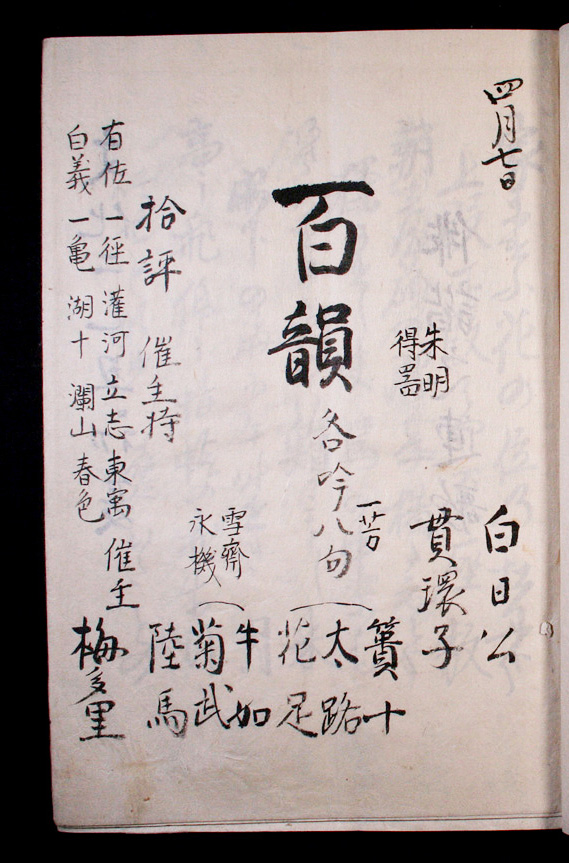 四月七日
白日公
貫環子
朱明
得器
簣十
一芳
太路
百韻 各吟八句
花足
牛如
雪齋
永機
菊武
陸馬
拾評 催主持
有佐 一徑 灌河 立志 東寓 催主
白義 一亀 湖十 瀾山 春色
梅多里